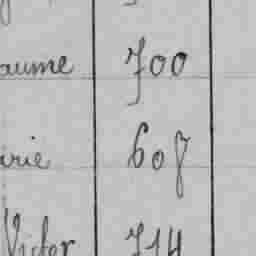 aume 700
irie 608
Victor 714